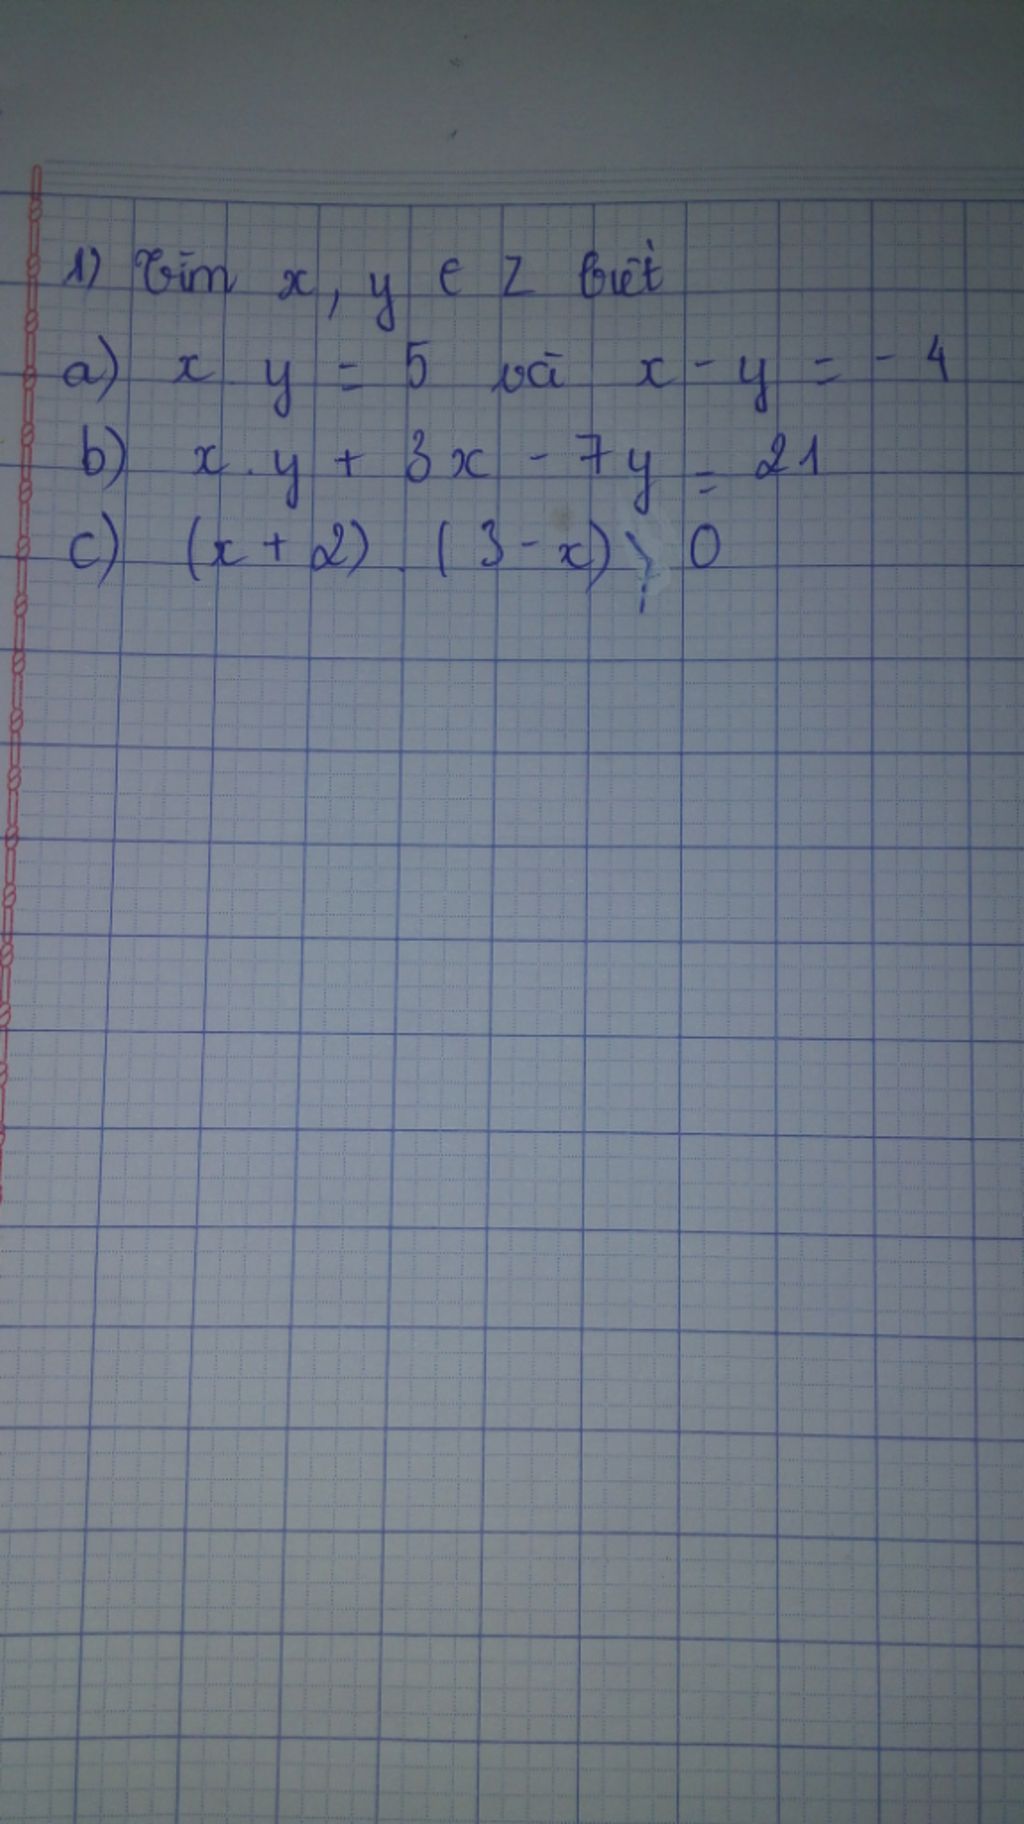 1) Tìm x, y ∈ Z biết
a) x . y = 5 và x - y = - 4
b) x . y + 3x - 7y = 21
c) (x + 2) . (3 - x) > 0